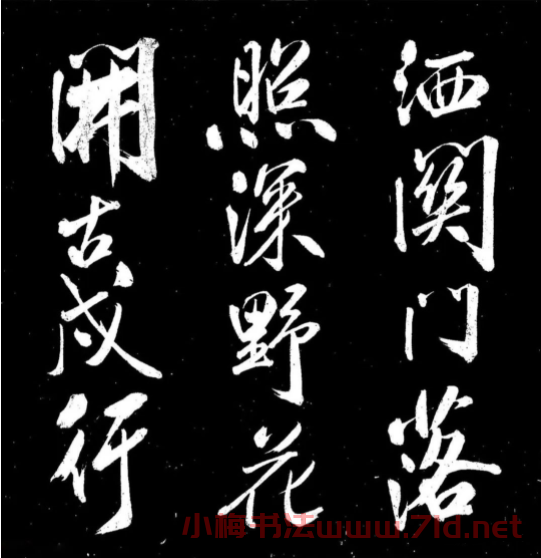 洒關門落
照深野花
開古戍行
小梅书法www.71d.net